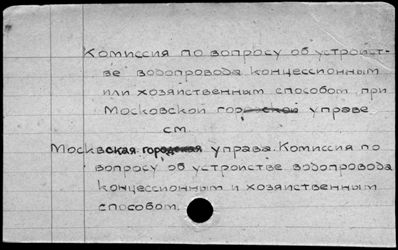 Комиссия по вопросу об устройст-
ве водопровода концессионным
или хозяйственным способом при
Московской городской управе
см.
Московская городская управа. Комиссия по
вопросу об устройстве водопровода
концессионным и хозяйственным
способом.